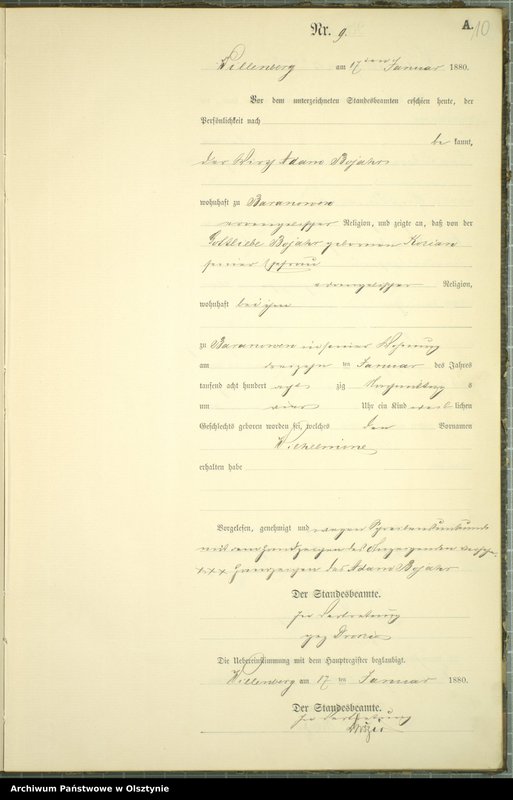 A.
10
Nr. 9.
Willenberg am 17ten Januar 1880.
Vor dem unterzeichneten Standesbeamten erschien heute, der
Persönlichkeit nach
be kannt,
der Wirth Adam Bojahr
wohnhaft zu Baranowen
evangelischer Religion, und zeigte an, daß von der
Gottliebe Bojahr geborenen
seiner Ehefrau
evangelischer Religion,
wohnhaft bei ihm
zu Baranowen in seiner Wohnung
am dreizehn ten Januar des Jahres
tausend acht hundert acht zig Nachmittag s
um vier Uhr ein Kind weib lichen
Geschlechts geboren worden sei, welches den Vornamen
Wilhelmine
erhalten habe
Vorgelesen, genehmigt und wegen Schreibensunkunde
mit Handzeichen des Anzeigenden versehen.
+++ Handzeichen des Adam Bojahr
Der Standesbeamte.
In Vertretung
gez
Die Uebereinstimmung mit dem Hauptregister beglaubigt.
Willenberg am 17 ten Januar 1880.
Der Standesbeamte.
In Vertretung
Archiwum Państwowe w Olsztynie